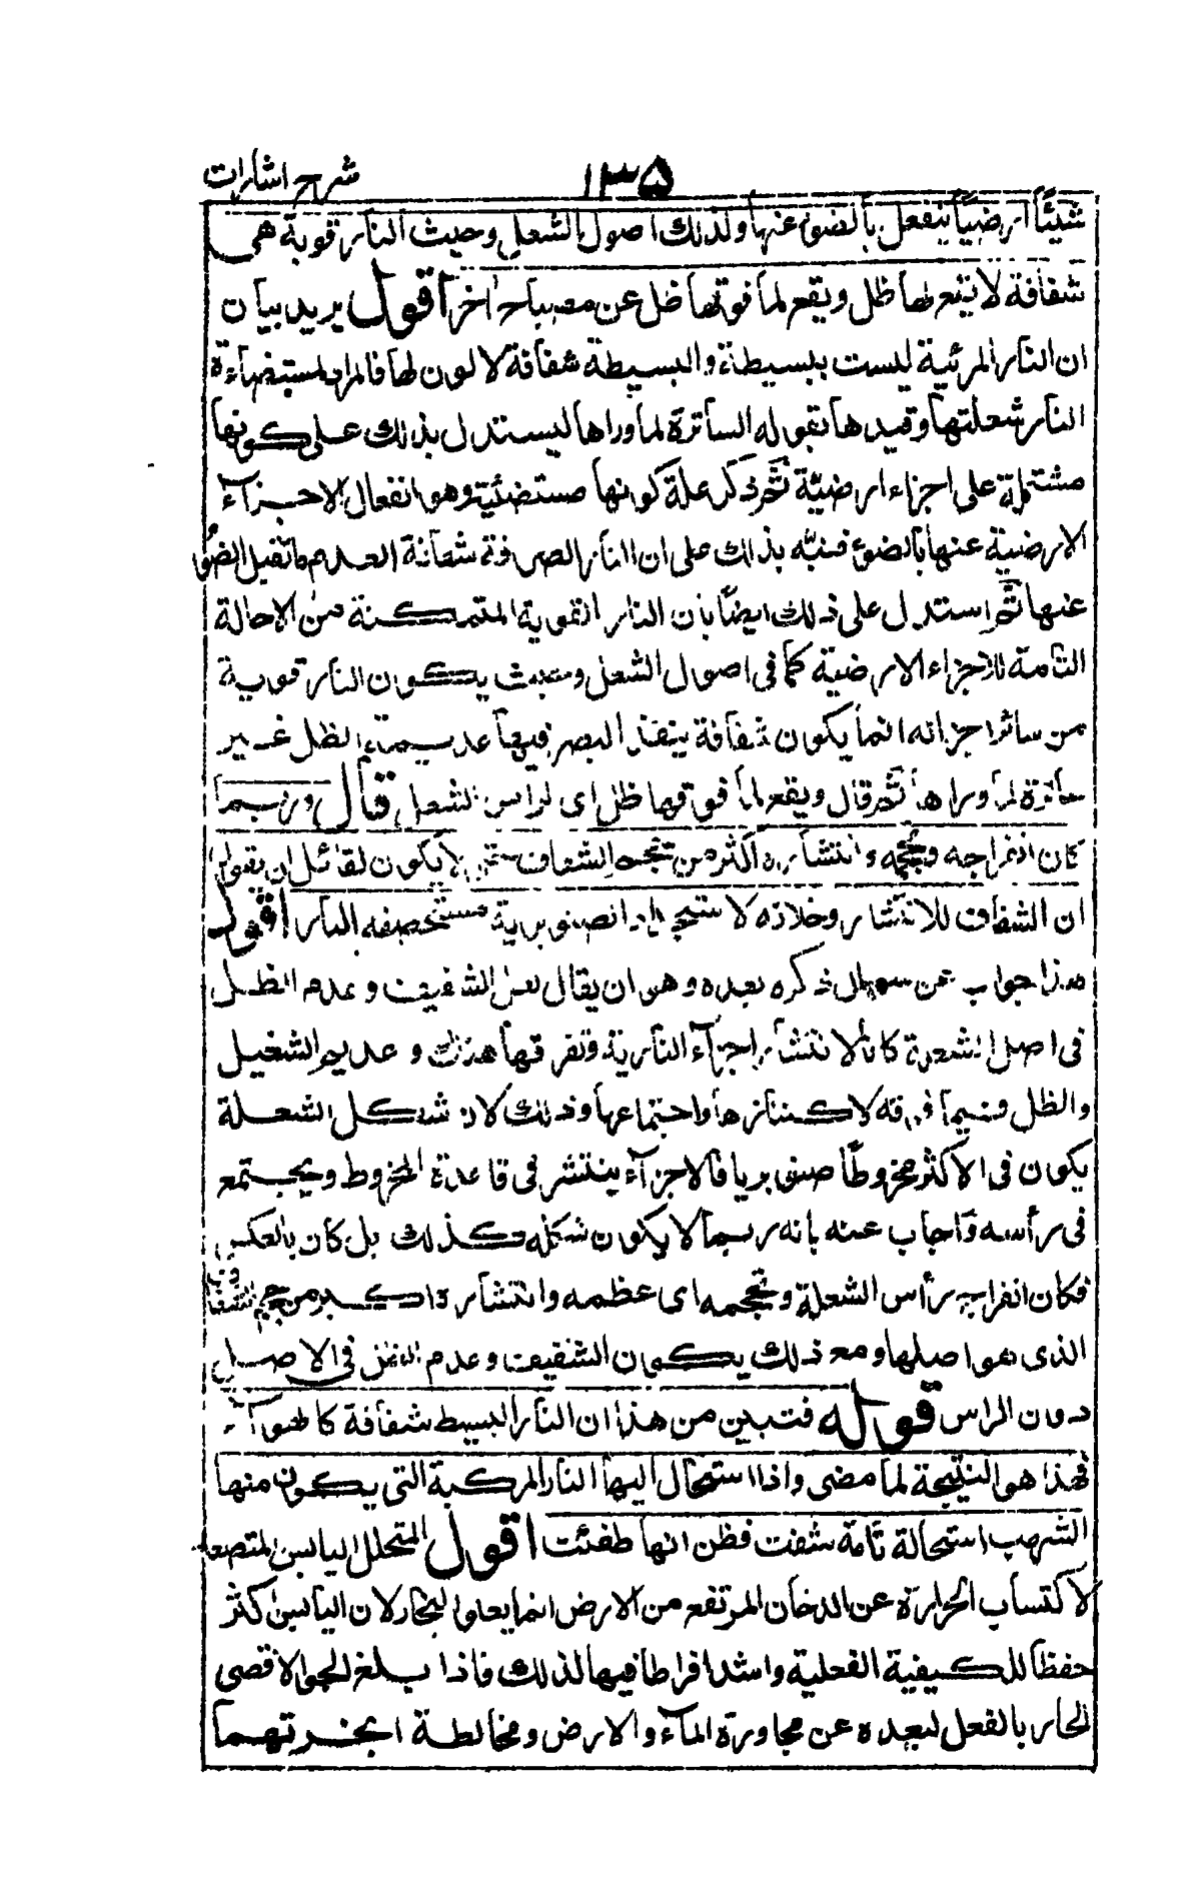 شرح اشارات
١٣۵
شيئًا ارضيًا ينفعل بالضوء عنها ولذلك اصول الشعل وحيث النار قوية هى
شفافة لا يقع لها ظل ويقع لما فوقها ظل عن مصباح اخر اقول يريد بيان
ان النار المرئية ليست ببسيطة والبسيطة شفافة لا لون لها فالمراد استضاءة
النار شعلتها وقيدها بقوله الساترة لما وراها ليستدل بذلك على كونها
مشتملة على اجزاء ارضية ثم ذكر علة كونها مستضئية وهو انفعال الاجزاء
الارضية عنها بالضوء فنبه بذلك على ان النار الصرفة شفافة لعدم ما تقبل الضوء
عنها ثم استدل على ذلك ايضًا بان النار القوية المتمكنة من الاحالة
التامة للاجزاء الارضية كما فى اصول الشعل وحيث يكون النار قوية
من سائر اجزائه انما يكون شفافة ينفذ البصر فيها عديمة الظل غير
ساترة لما وراها ثم قال ويقع لما فوقها ظل اى لراس الشعل قال وربما
كان انفراجه وتحجمه وانتشاره اكثر من تحجم الشفاف حتى لا يكون لقائل ان يقول
ان الشفاف للانتشار وخلافه لاستحجار الصنوبرية مستحصفه النار اقول
هذا جواب عن سوال ذكره بعده وهو ان يقال لعل الشفيف وعدم الظل
فى اصل الشعلة كانا لانتشار اجزاء النارية وتفرقها هناك و عديم الشغيل
والظل فيما فوقه لاكتنازها واجتماعها وذلك لان شكل الشعلة
يكون فى الاكثر مخروطًا صنوبريا فالاجزاء ينتشر فى قاعدة المخروط ويجتمع
فى رأسه واجاب عنه بانه ربما لا يكون شكله كذلك بل كان بالعكس
فكان انفراج رأس الشعلة وتحجمه اى عظمه وانتشاره اكبر من حجم الشفاف
الذى هو اصلها ومع ذلك يكون الشفيف وعدم الظل فى الاصل
دون الراس قوله فتبين من هذا ان النار البسيط شفافة كالهواء
فهذا هو النتيجة لما مضى واذا استحال اليها النار المركبة التى يكون منها
الشهب استحالة تامة شفت فظن انها طفئت اقول المتحلل اليابس المتصعد
لاكتساب الحرارة عن الدخان المرتفع من الارض انما يعلو البخار لان اليابس اكثر
حفظا للكيفية الفعلية واشد افراطا فيها لذلك فاذا بلغ الجو الاقصى
الحار بالفعل لبعده عن مجاورة الماء والارض ومخالطة ابخرتهما